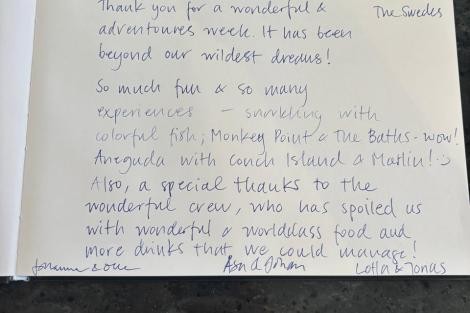 Thank you for a wonderful & The Swedes
adventoures week. It has been
beyond our wildest dreams!
So much fun & so many
experiences – snorkling with
colorful fish; Monkey Point & The Baths - wow!
Anegada with Conch Island & Marlin! :)
Also, a special thanks to the
wonderful crew, who has spoiled us
with wonderful & worldclass food and
more drinks that we could manage!
Åsa & Johan Lotta & Jonas